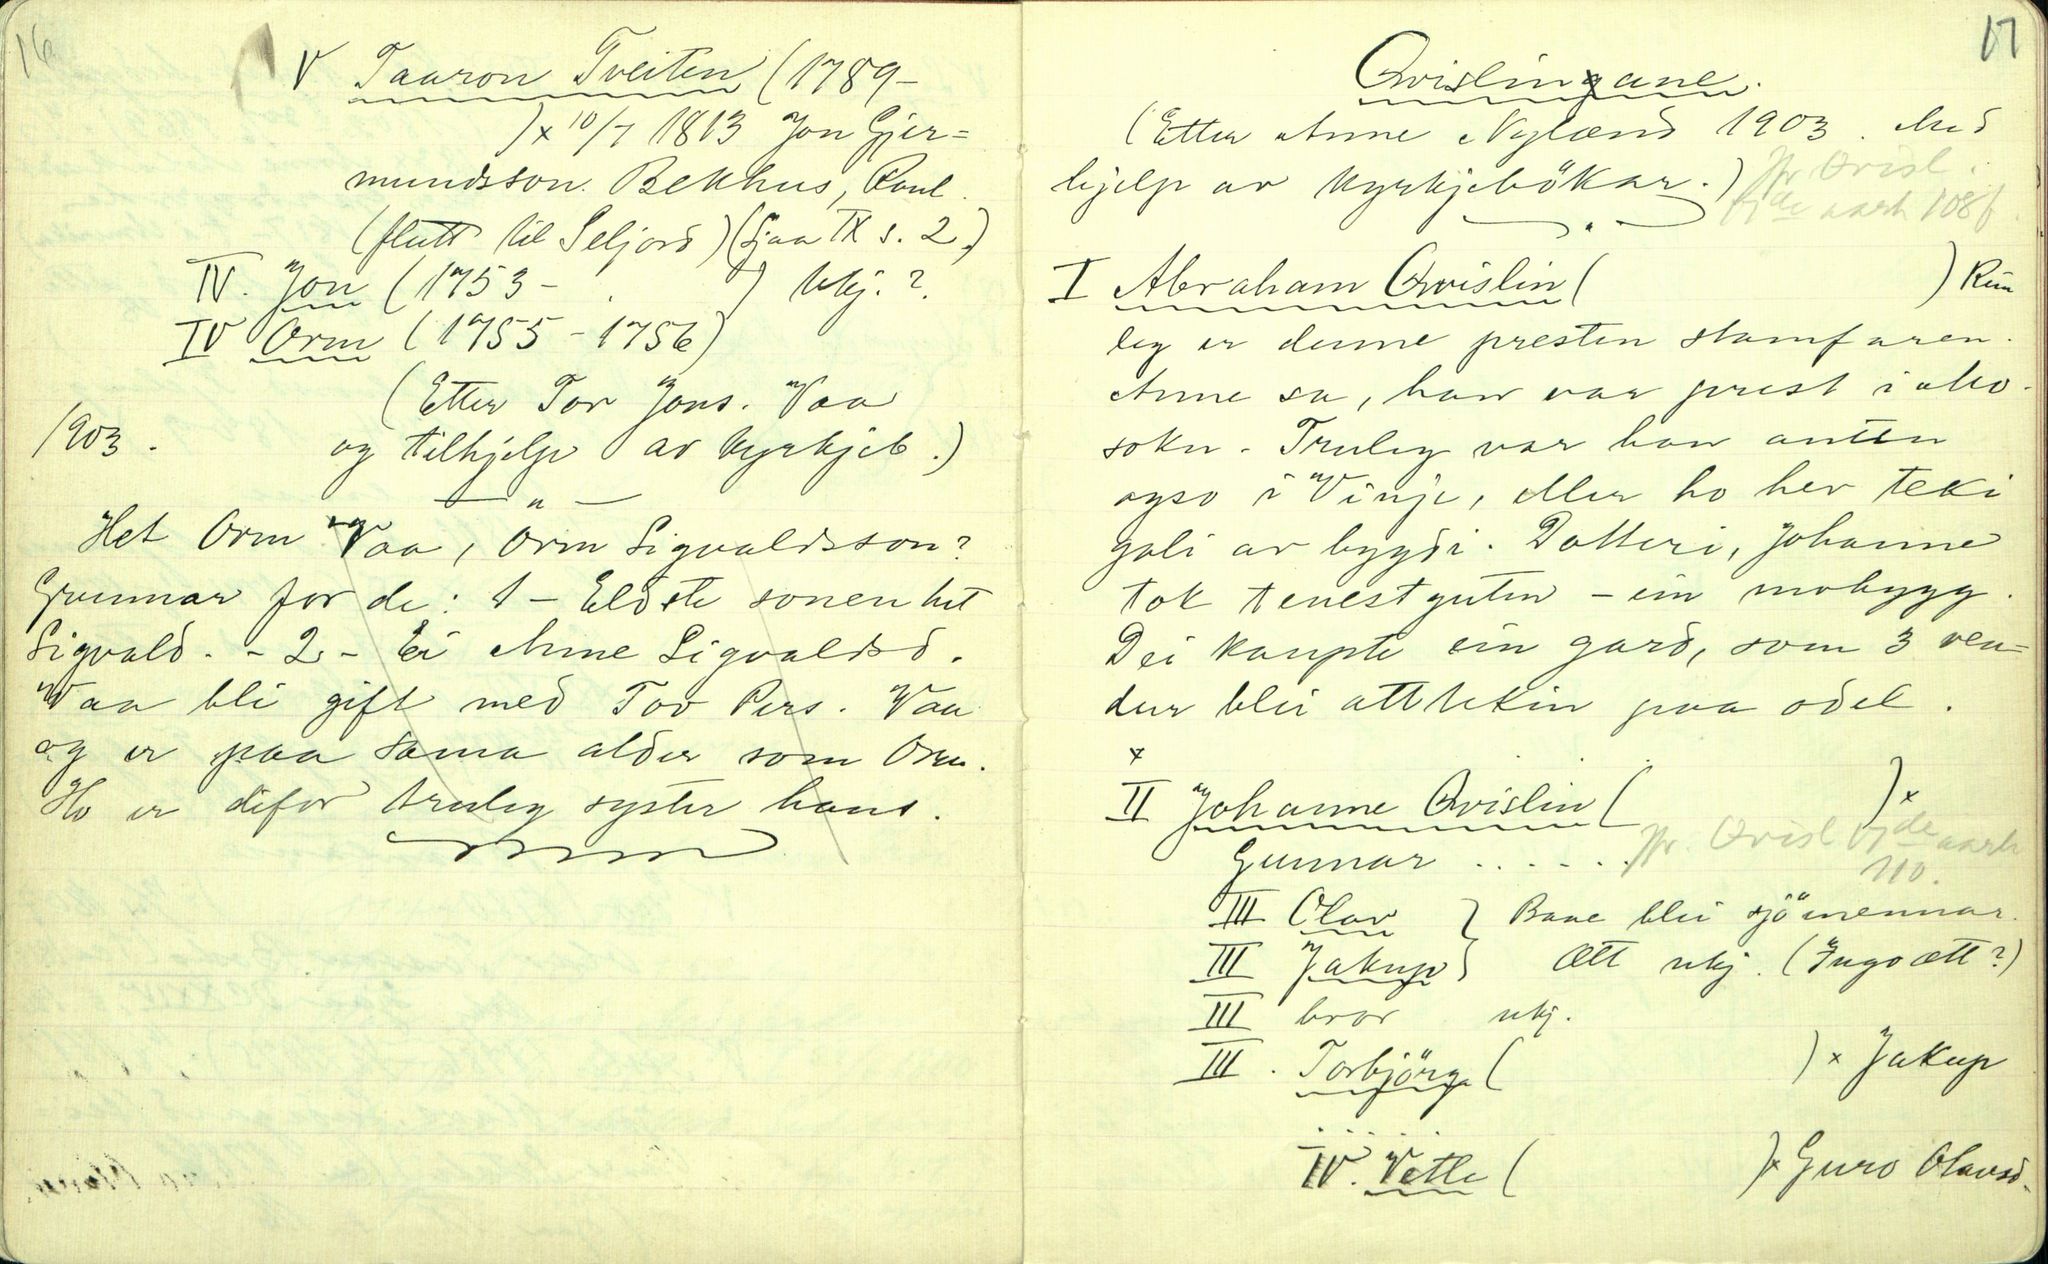 16
V Taaron Tveiten (1789–
) x 10/7 1813 Jon Gjer=
mundsson Bekhus, Raul.
(flutt til Seljord) (Sjaa IX s. 2.)
IV. Jon (1753 – . ) Ukj. ?.
IV Orm (1755 – 1756)
(Etter Tor Jons. Vaa
1903. og tilhjelp av kyrkjeb.)
— " —
Het Orm Vaa, Orm Sigvaldsson?
Grunnar for de: 1 – Eldste sonen het
Sigvald. – 2 – Ei Anne Sigvaldsd.
Vaa bli gift med Tov Pers. Vaa
og er paa sama alder som Orm.
Ho er difor truleg syster hans.
17
Qvislingane.
(Etter Anne Nyland 1903. Med
hjelp av kyrkjebökar.)
Jfr Qvisl.
17de aarh 108f.
I Abraham Qvislin ( ) Rim
leg er denne presten stamfaren.
Anne sa, han var prest i Mo
sokn. Truleg var han anten
ogso i Vinje, eller ho her teki
gali av bygdi. Dotteri, Johanne
tok tenestguten – ein mobygg.
Dei kaupte ein gard, som 3 ven=
dur blei attekin paa odel.
x
II Johanne Qvislin ( ) x
Gunnar . . . . . .
Jfr Qvisl 17de aarh
110.
III Olav } Baae blei sjömennar.
III Jakup } Ætt ukj. (Ingo ætt?)
III bror ukj.
III. Torbjörg ( ) x Jakup
. . . . .
IV. Vetle ( ) x Guro Olavsd.